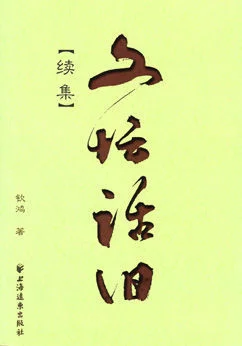 文坛话旧
【续集】
钦鸿 著
上海远东出版社